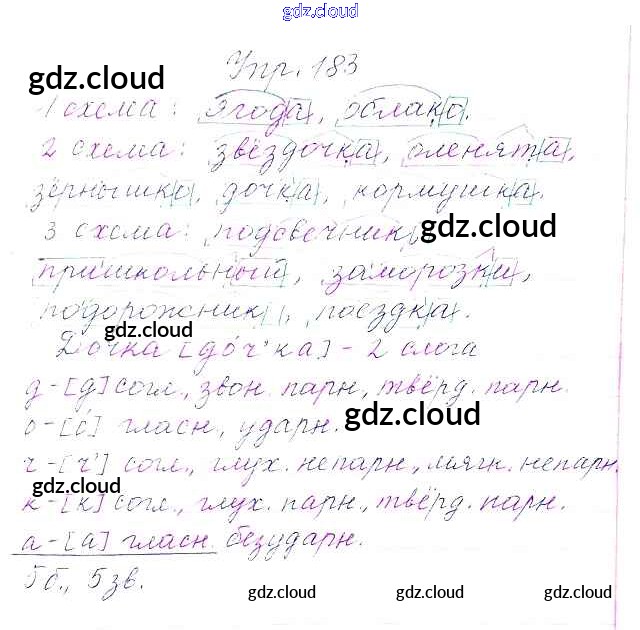 gdz.cloud
Упр. 183
gdz.cloud
1 схема: ягода, облако.
2 схема: звёздочка, оленята,
зёрнышко, дочка, кормушка.
3 схема: подсвечник, gdz.cloud
пришкольный, заморозки,
подорожник, поездка.
gdz.cloud
Дочка [до́ч'ка] - 2 слога
д - [д] согл., звон. парн., твёрд. парн.
о - [о́] гласн., ударн. gdz.cloud
ч - [ч'] согл., глух. непарн., мягк. непарн.
gdz.cloud
к - [к] согл., глух. парн., твёрд. парн.
а - [а] гласн. безударн.
5 б., 5 зв.
gdz.cloud gdz.cloud gdz.cloud